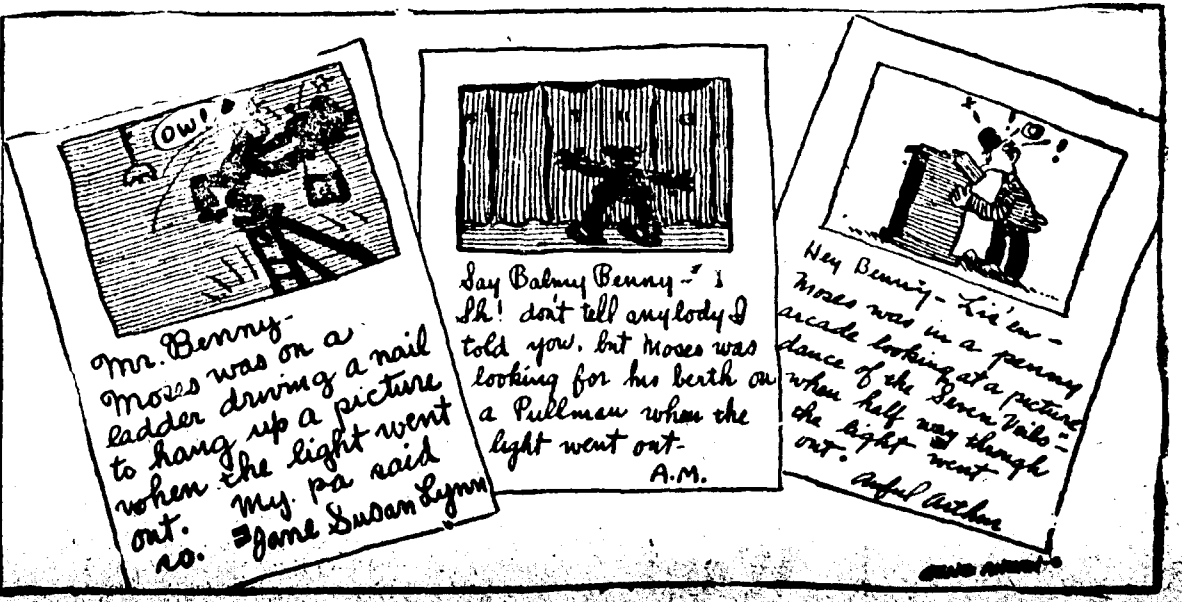 OW!
Mr. Benny-
Moses was on a
ladder driving a nail
to hang up a picture
when the light went
out. My pa said
so. Jane Susan Lynn
Say Balmy Benny-
Sh! don't tell anybody I
told you, but Moses was
looking for his berth on
a Pullman when the
light went out-
A.M.
Hey Benny- Lis'en-
Moses was in a penny
arcade looking at a picture
dance of the Seven Veils-
when half way through
the light went
out.
Awful Arthur